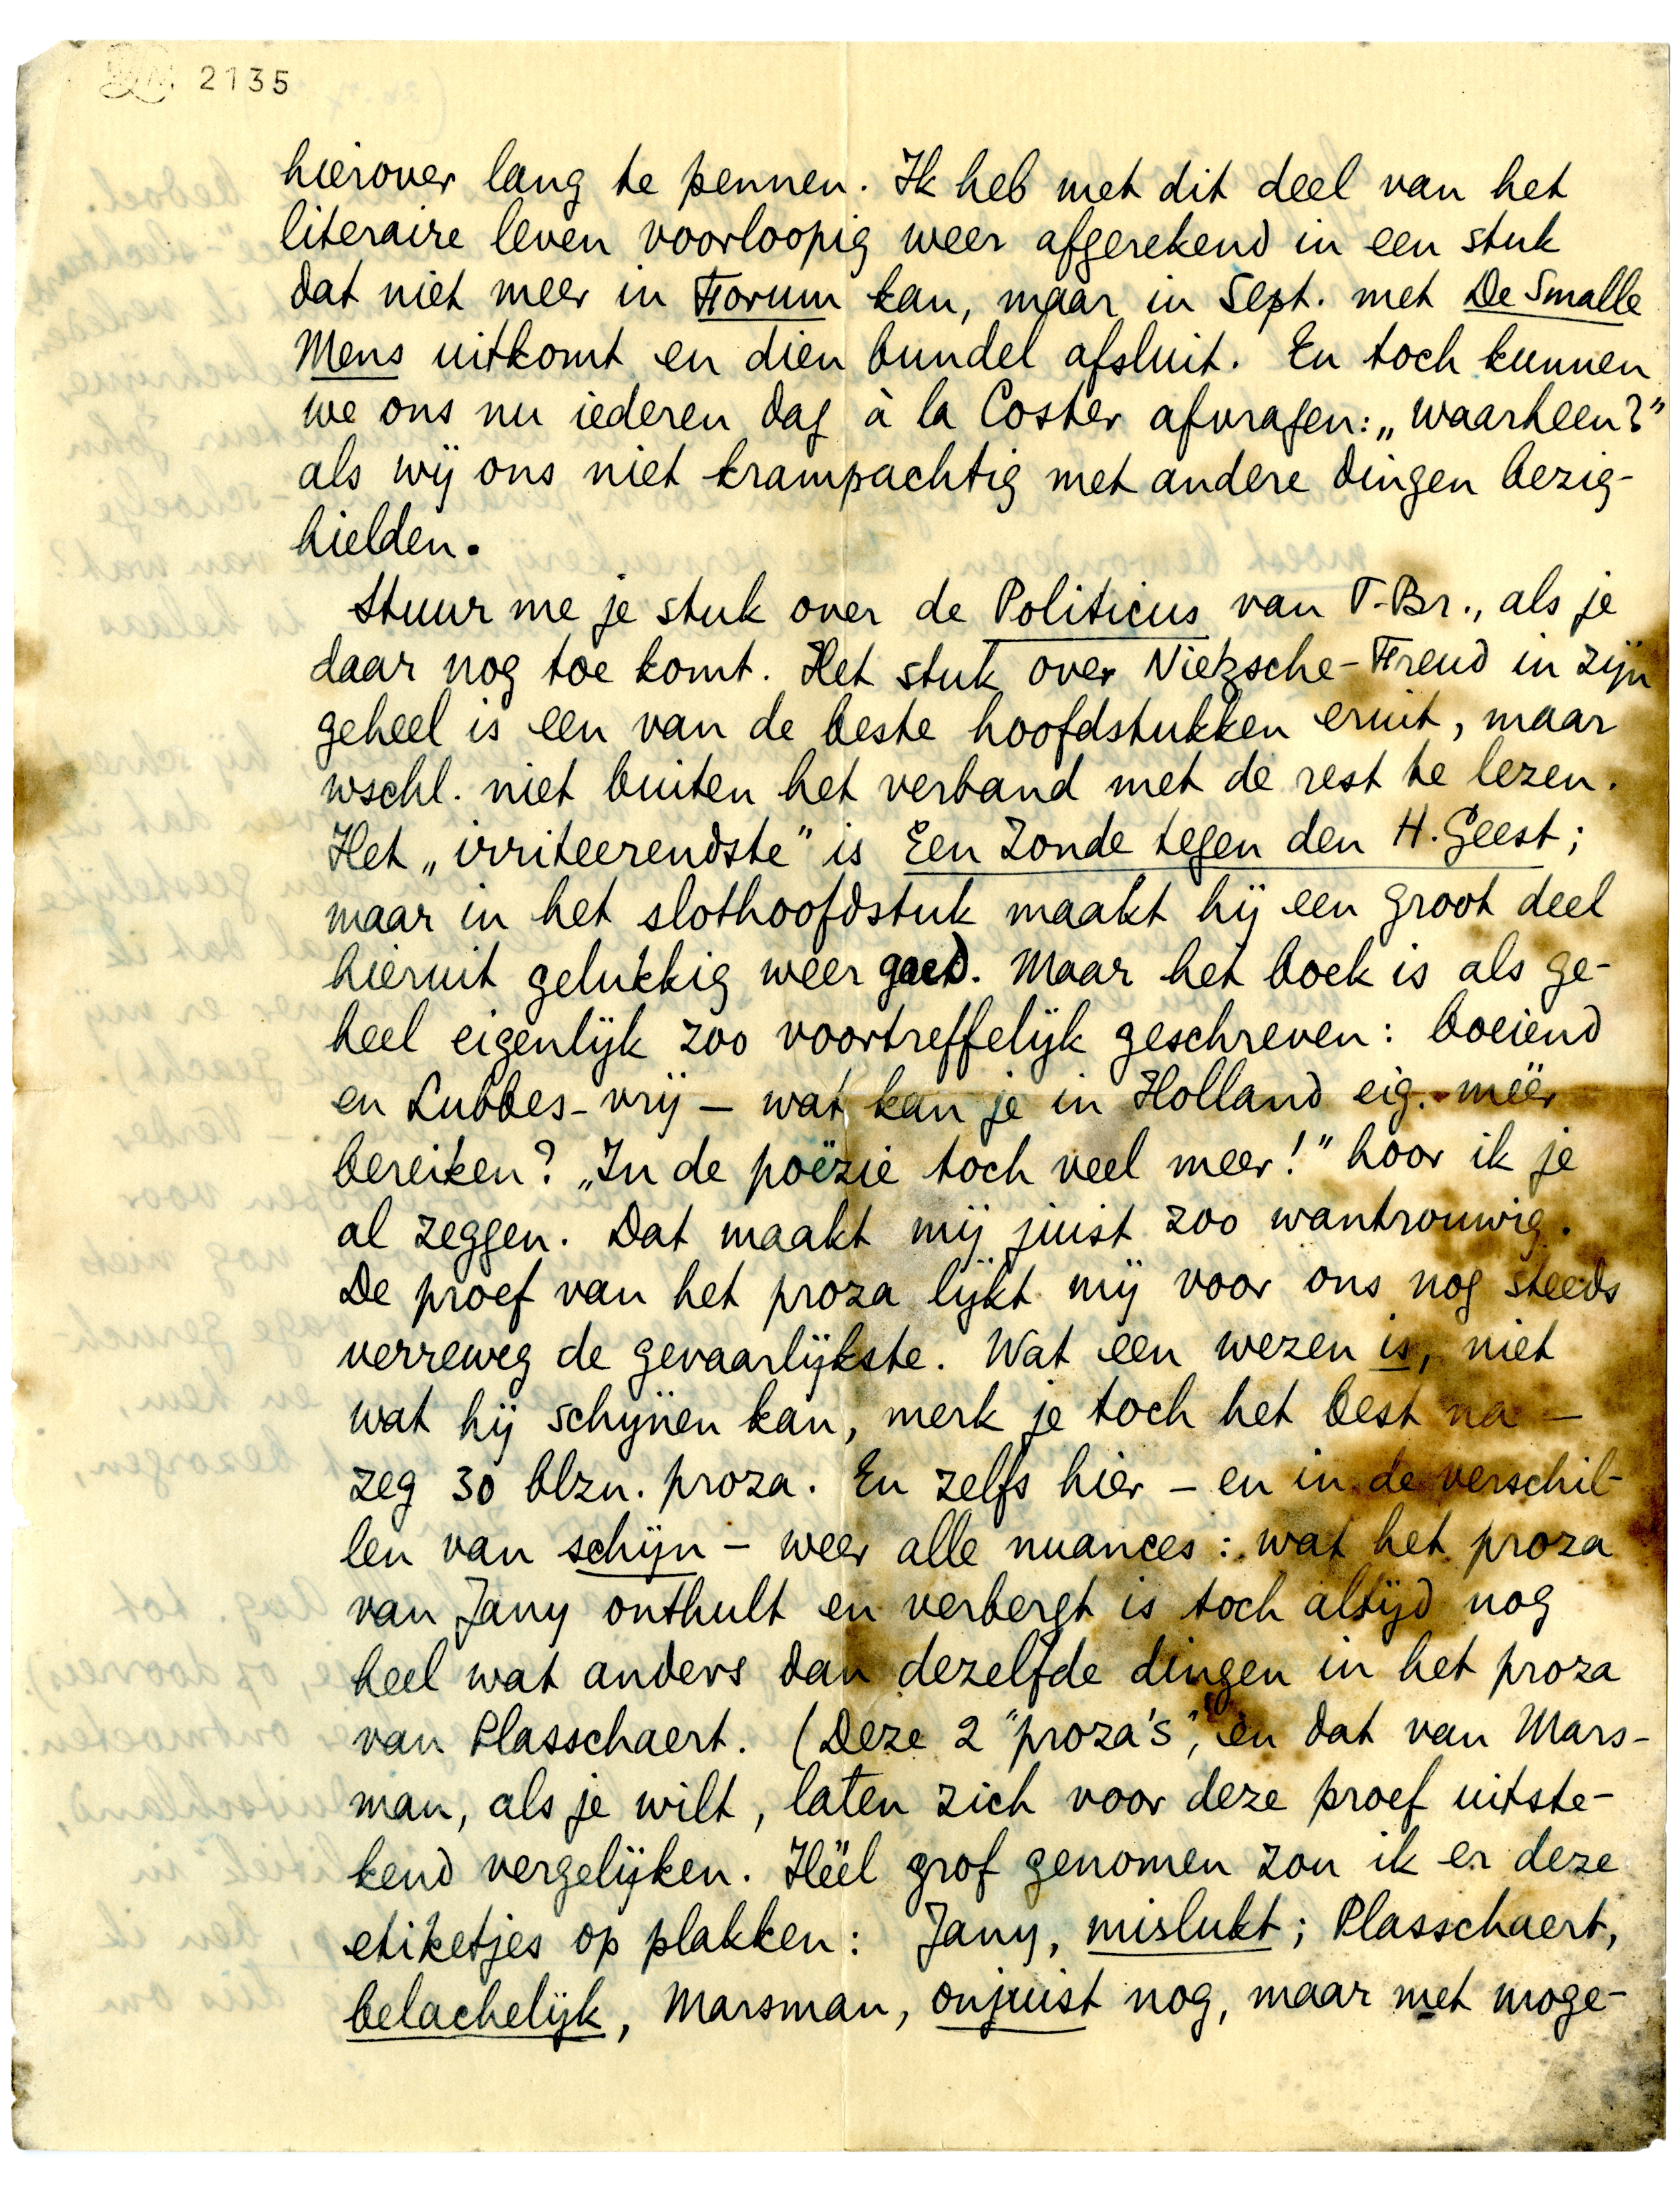 2135
hierover lang te pennen. Ik heb met dit deel van het
literaire leven voorloopig weer afgerekend in een stuk
dat niet meer in Forum kan, maar in Sept. met De Smalle
Mens uitkomt en dien bundel afsluit. En toch kunnen
we ons nu iederen dag à la Coster afvragen: „waarheen?”
als wij ons niet krampachtig met andere dingen bezig-
hielden.
Stuur me je stuk over de Politicus van T-Br., als je
daar nog toe komt. Het stuk over Nietzsche-Freud in zijn
geheel is een van de beste hoofdstukken eruit, maar
wschl. niet buiten het verband met de rest te lezen.
Het „irriteerendste” is Een Zonde tegen den H. Geest;
maar in het slothoofdstuk maakt hij een groot deel
hieruit gelukkig weer goed. Maar het boek is als ge-
heel eigenlijk zoo voortreffelijk geschreven: boeiend
en Lubbes-vrij – wat kan je in Holland eig. méér
bereiken? „In de poëzie toch veel meer!” hoor ik je
al zeggen. Dat maakt mij juist zoo wantrouwig.
De proef van het proza lijkt mij voor ons nog steeds
verreweg de gevaarlijkste. Wat een wezen is, niet
wat hij schijnen kan, merk je toch het best na –
zeg 30 blzn. proza. En zelfs hier – en in de verschil-
len van schijn – weer alle nuances: wat het proza
van Jany onthult en verbergt is toch altijd nog
heel wat anders dan dezelfde dingen in het proza
van Plasschaert. (Deze 2 "proza's", èn dat van Mars-
man, als je wilt, laten zich voor deze proef uitste-
kend vergelijken. Héél grof genomen zou ik er deze
etiketjes op plakken: Jany, mislukt; Plasschaert,
belachelijk, Marsman, onjuist nog, maar met moge-